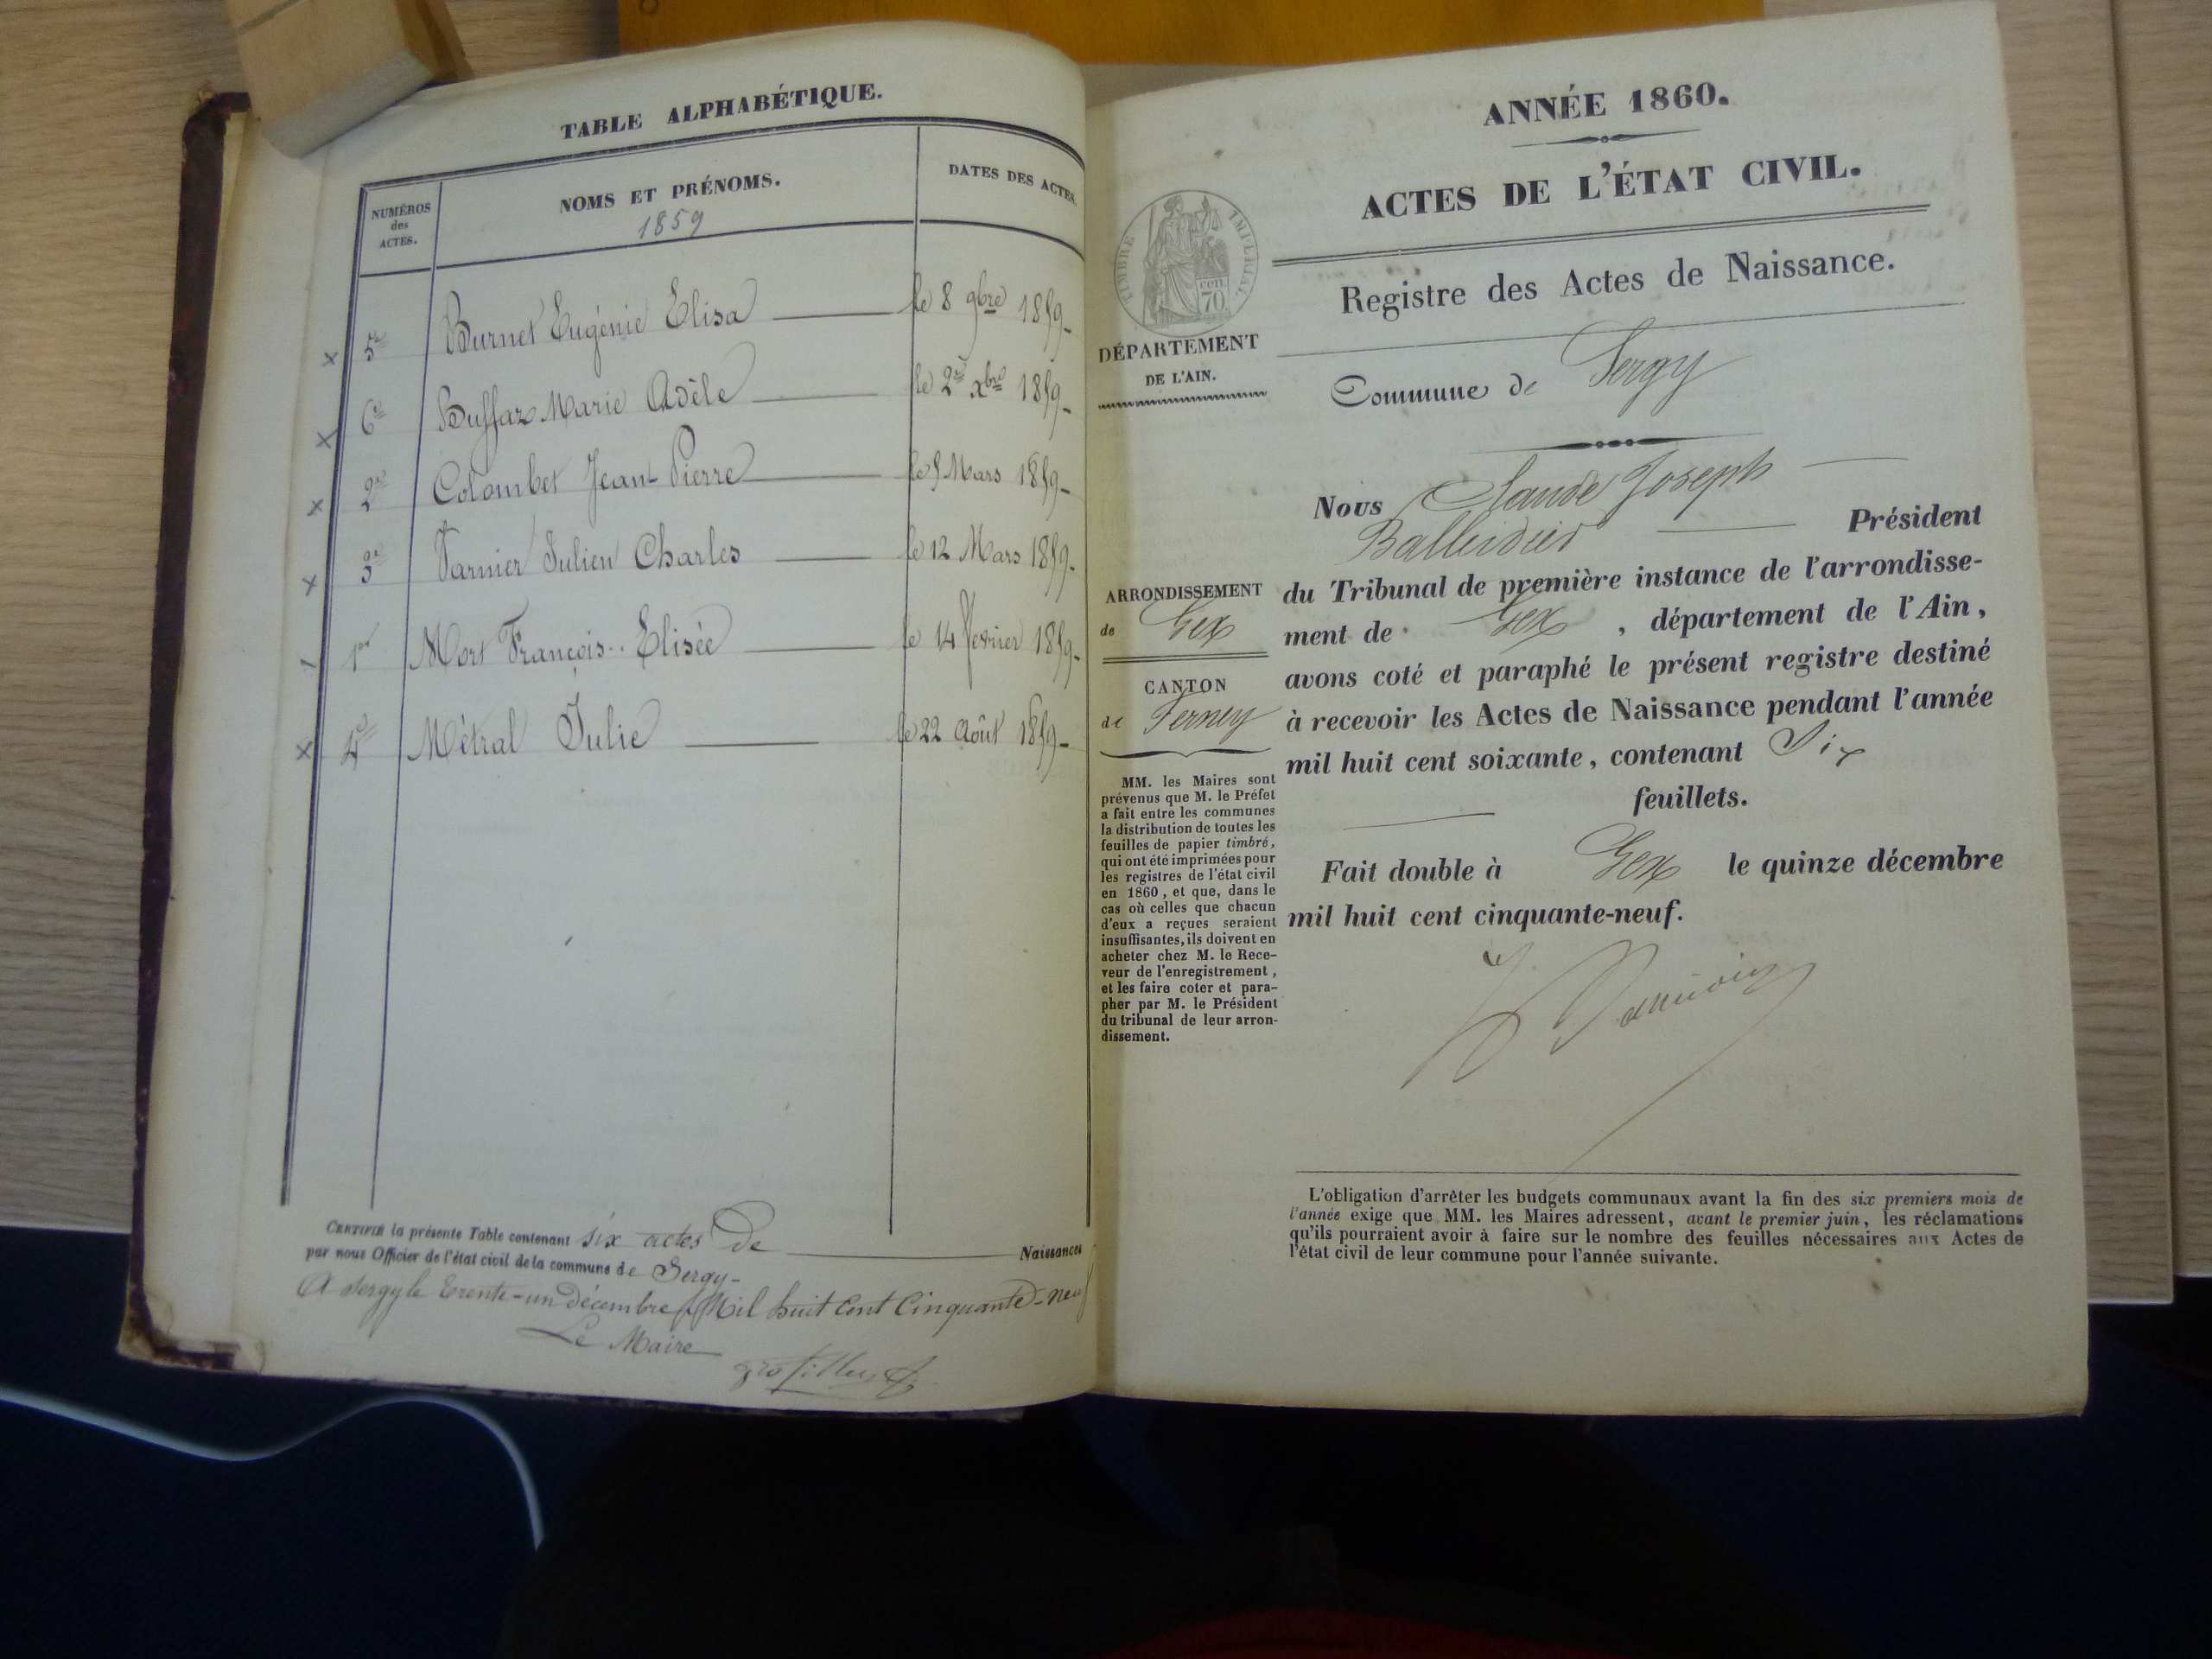 TABLE ALPHABÉTIQUE.
NUMÉROS
des
ACTES.
NOMS ET PRÉNOMS.
1859
DATES DES ACTES.
x 5e Burnet Eugénie Elisa le 8 9bre 1859
x 6e Buffaz Marie Adèle le 2e xbre 1859
x 2e Colombet Jean Pierre le 5 Mars 1859
x 3e Julien Charles le 12 Mars 1859
1er Mort François Elisée le 14 fevrier 1859
x 4e Métral Julie le 22 Août 1859
CERTIFIÉ la présente Table contenant six actes De Naissances
par nous Officier de l'état civil de la commune de Sergy
A Sergy le trente-un décembre Mil huit Cent Cinquante-neuf
Le Maire
ANNÉE 1860.
ACTES DE L'ÉTAT CIVIL.
TIMBRE IMPÉRIAL
70
Registre des Actes de Naissance.
DÉPARTEMENT
DE L'AIN.
Commune de Sergy
Nous Claude Joseph
Balleidier Président
du Tribunal de première instance de l'arrondisse-
ment de Gex, département de l'Ain,
avons coté et paraphé le présent registre destiné
à recevoir les Actes de Naissance pendant l'année
mil huit cent soixante, contenant Six
feuillets.
Fait double à Gex le quinze décembre
mil huit cent cinquante-neuf.
ARRONDISSEMENT
de Gex
CANTON
de Ferney
MM. les Maires sont
prévenus que M. le Préfet
a fait entre les communes
la distribution de toutes les
feuilles de papier timbré,
qui ont été imprimées pour
les registres de l'état civil
en 1860, et que, dans le
cas où celles que chacun
d'eux a reçues seraient
insuffisantes, ils doivent en
acheter chez M. le Rece-
veur de l'enregistrement,
et les faire coter et para-
pher par M. le Président
du tribunal de leur arron-
dissement.
L'obligation d'arrêter les budgets communaux avant la fin des six premiers mois de
l'année exige que MM. les Maires adressent, avant le premier juin, les réclamations
qu'ils pourraient avoir à faire sur le nombre des feuilles nécessaires aux Actes de
l'état civil de leur commune pour l'année suivante.